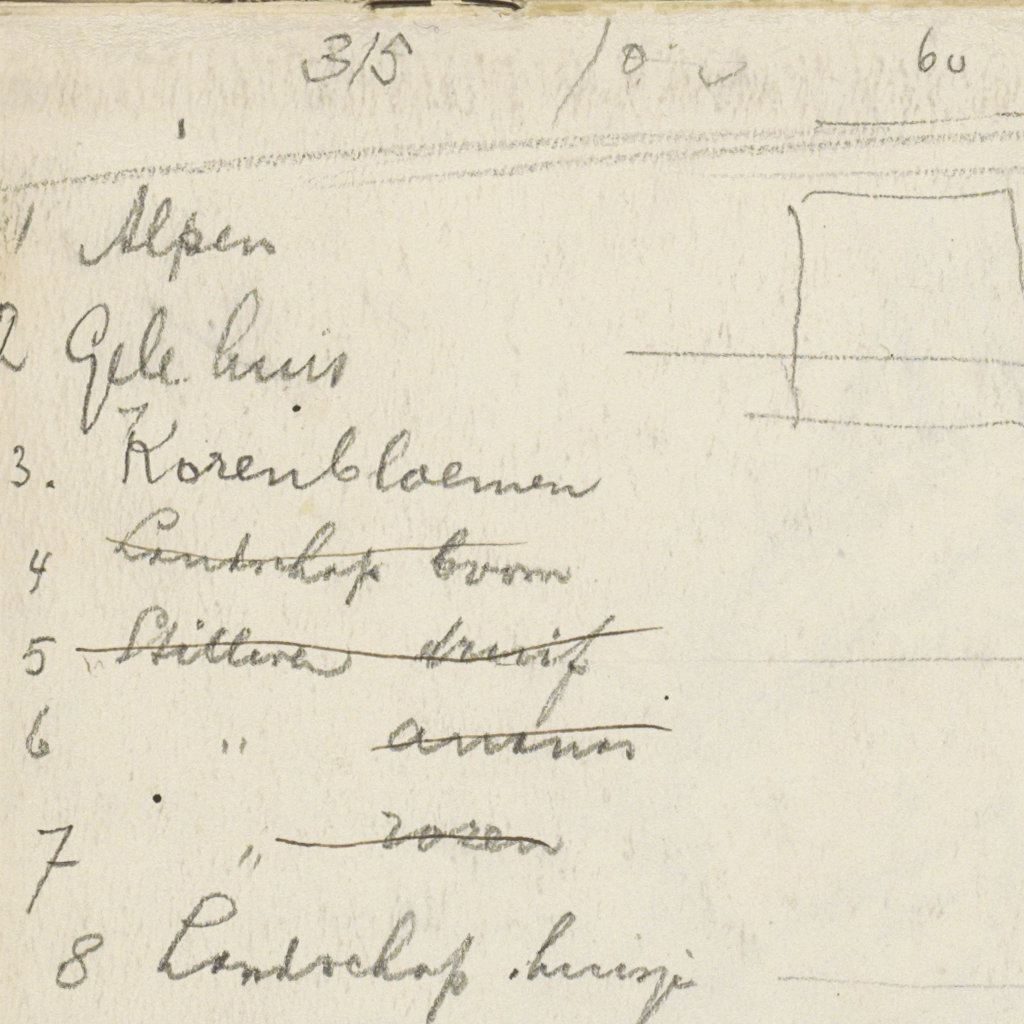 315 60
1 Alpen
2 Gele huis
3. Korenbloemen
4 Landschap boom
5 Stilleven druif
6 " ananas
7 " rozen
8 Landschap huisje